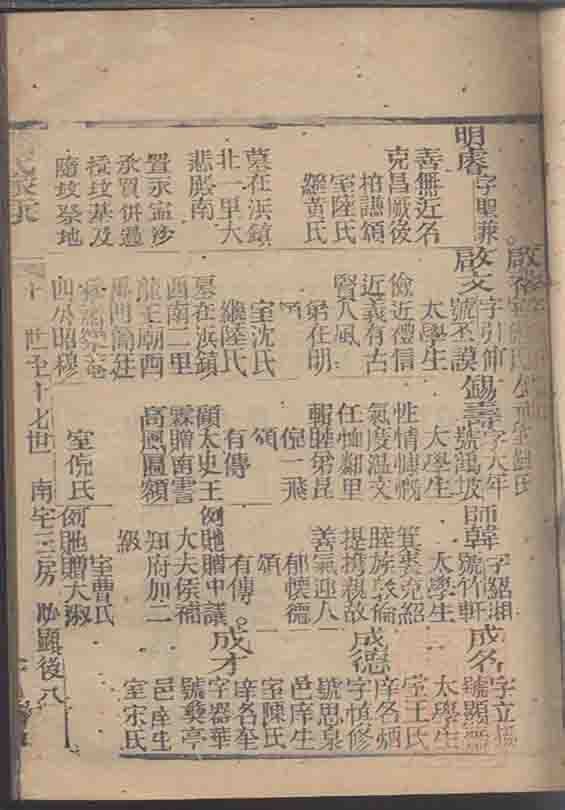 明睿
字聖兼
善無近名
克昌厥後
柏謙頌
室陸氏
繼黃氏
墓在浜鎮
北一里大
悲殿南
隨墳祭地
啟文
字引伸
號丕謨
太學生
儉近禮信
近義有古
賢人風
弟在明
頌
室沈氏
繼陸氏
墓在浜鎮
西南二里
龍王廟西
四公昭穆
錫壽
字大年
號鶴坡
太學生
性情慷慨
氣度溫文
任恤鄰里
輯睦弟昆
倪一飛
頌
有傳
顧太史王
霖贈南雲
高風匾額
室倪氏
例貤贈大淑
師韓
字紹湘
號竹軒
太學生
箕裘克紹
睦族敦倫
提攜親故
善氣迎人
郁懷德
頌
有傳
例貤贈中議
大夫候補
知府加二
級
室曹氏
成名
字立揚
太學生
室王氏
成德
庠名炳
字慎修
號思泉
邑庠生
室陳氏
成才
庠名奎
字器華
號藝亭
邑庠生
室宋氏
世至十七世
南宅三房
顯後八